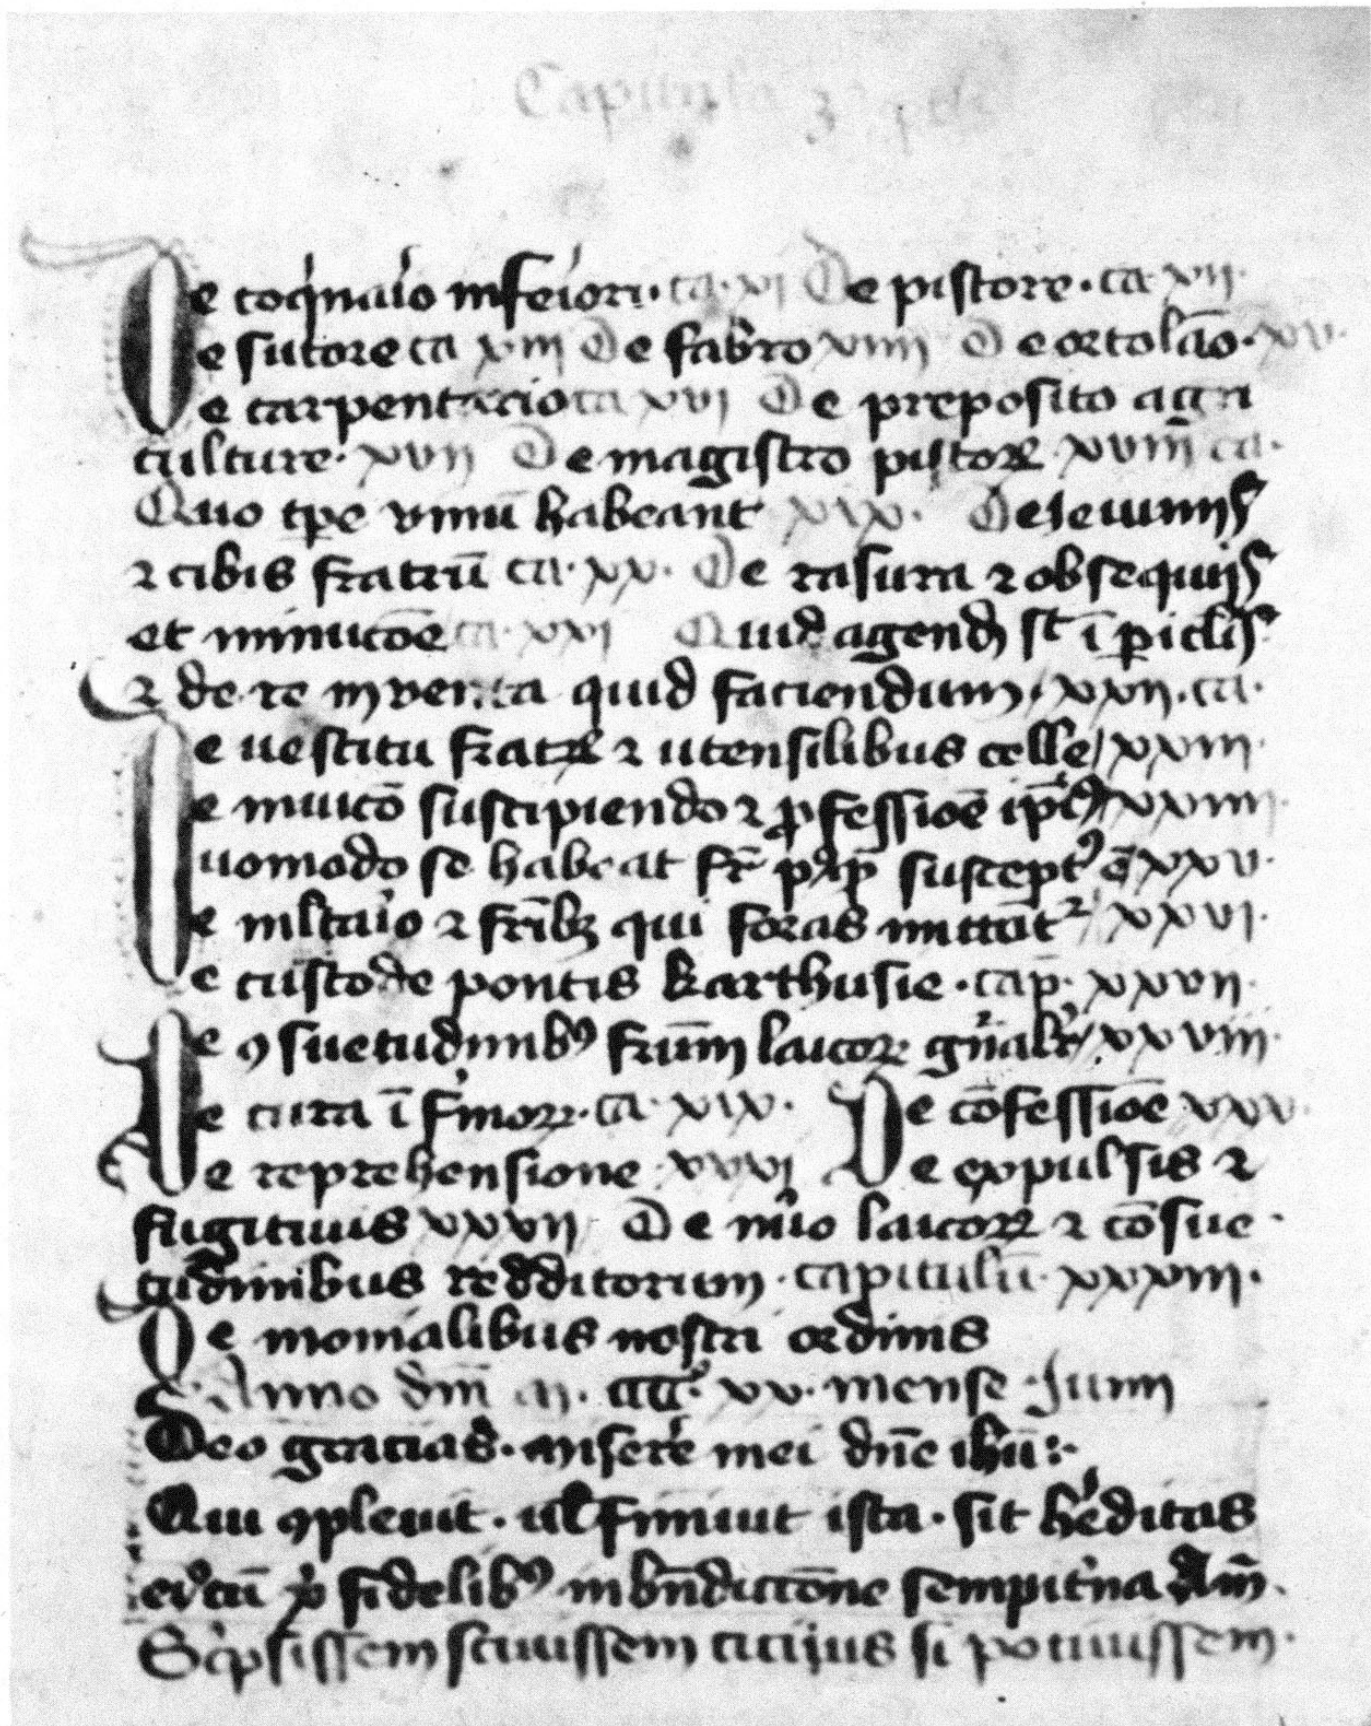 Capitula 3
De coq̇nario inferiori· ca· xi De pistore· ca· xii·
De sutore ca xiii De fabro xiiii De ortolāo· xv·
De carpentario ca xvi De preposito agri
culture· xvii De magistro pistoꝝ xviii ca·
Quo tꝑe vinū habeant xix· De ieiuniis
⁊ cibis fratrū ca· xx· De rasura ⁊ obsequiis
et minucōe ca· xxi Quid agendū st̄ ī ꝑiclis
⁊ de re inventa quid faciendum· xxii· ca·
De vestitu fratrū ⁊ utensilibus celle xxiii·
De nouicō suscipiendo ⁊ ꝓfessiōe ip̄iꝰ xxiiii
Quomodo se habeat fr̄ suscept⁹ ē xxv·
⁊ fr̄ibꝫ qui foras mittāt᷑ xxvi·
De custode pontis Karthusie· cap̄· xxvii·
De ꝯsuetudinib⁹ frūm laicoꝝ gn̄alr̄ xxviii·
De cura īfirmoꝝ· ca· xix· De cōfessiōe xxx·
De reprehensione xxxi De expulsis ⁊
fugitivis xxxii De laicoꝝ ⁊ cōsue
tudinibus redditorum· capitulū· xxxiii·
De monialibus nostri ordinis
Anno dn̄i m· cccc° xv· mense Junii
Deo gracias· Miserere mei dn̄e ih̄u:·
Qui ꝯplevit· ul finiuit ista· sit hereditas
ei⁹ cū xp̄i fidelib⁹ in bn̄dictōne sempiterna Am̄·
Scripsissem scivissem cicijus si potuissem·